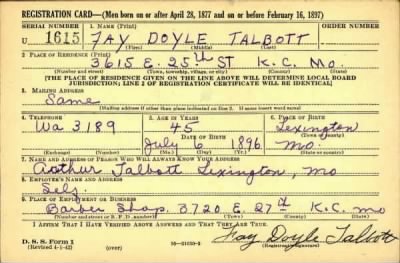 REGISTRATION CARD—(Men born on or after April 28, 1877 and on or before February 16, 1897)
SERIAL NUMBER 1. NAME (Print) ORDER NUMBER
U 1615 FAY DOYLE TALBOTT
(First) (Middle) (Last)
2. PLACE OF RESIDENCE (Print)
3615 E. 25th ST K.C. Mo.
(Number and street) (Town, township, village, or city) (County) (State)
[THE PLACE OF RESIDENCE GIVEN ON THE LINE ABOVE WILL DETERMINE LOCAL BOARD
JURISDICTION; LINE 2 OF REGISTRATION CERTIFICATE WILL BE IDENTICAL]
3. MAILING ADDRESS
Same
[Mailing address if other than place indicated on line 2. If same insert word same]
4. TELEPHONE 5. AGE IN YEARS 6. PLACE OF BIRTH
Wa 3189 45 Lexington
DATE OF BIRTH (Town or county)
July 6 1896 Mo.
(Exchange) (Number) (Mo.) (Day) (Yr.) (State or country)
7. NAME AND ADDRESS OF PERSON WHO WILL ALWAYS KNOW YOUR ADDRESS
Arthur Talbott Lexington, Mo
8. EMPLOYER'S NAME AND ADDRESS
Self
9. PLACE OF EMPLOYMENT OR BUSINESS
Barber Shop 3720 E 27th K.C. Mo
(Number and street or R. F. D. number) (Town) (County) (State)
I AFFIRM THAT I HAVE VERIFIED ABOVE ANSWERS AND THAT THEY ARE TRUE.
D. S. S. Form 1
(Revised 4-1-42) (over) Fay Doyle Talbott
(Registrant's signature)